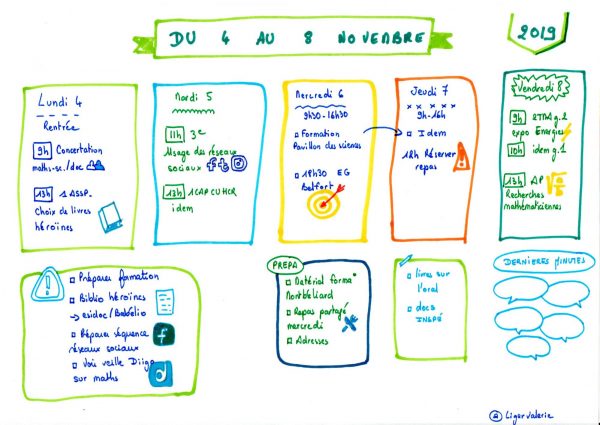 DU 4 AU 8 NOVEMBRE
2019
Lundi 4
Rentrée
9h Concertation
maths-sc./doc
13h 1 ASSP.
Choix de livres
héroïnes
Mardi 5
11h 3e
Usage des réseaux
sociaux f t
13h 1CAP CUHCR
idem
Mercredi 6
9h30-16h30
Formation
Pavillon des sciences
18h30 EG
Belfort
Jeudi 7
9h-16h
Idem
12h Réserver
repas
Vendredi 8
9h 2TMA g.2
expo Energies
10h idem g.1
13h AP
Recherches
mathématiciennes
Préparer formation
Biblio héroïnes
→ esidoc/Babélio
Préparer séquence
réseaux sociaux
Voir veille Diigo
sur maths
f
d
PREPA
Matériel forma°
Montbéliard
Repas partagé
mercredi
Adresses
livres sur
l'oral
docs
INSPÉ
DERNIERES MINUTES
Ligervalerie